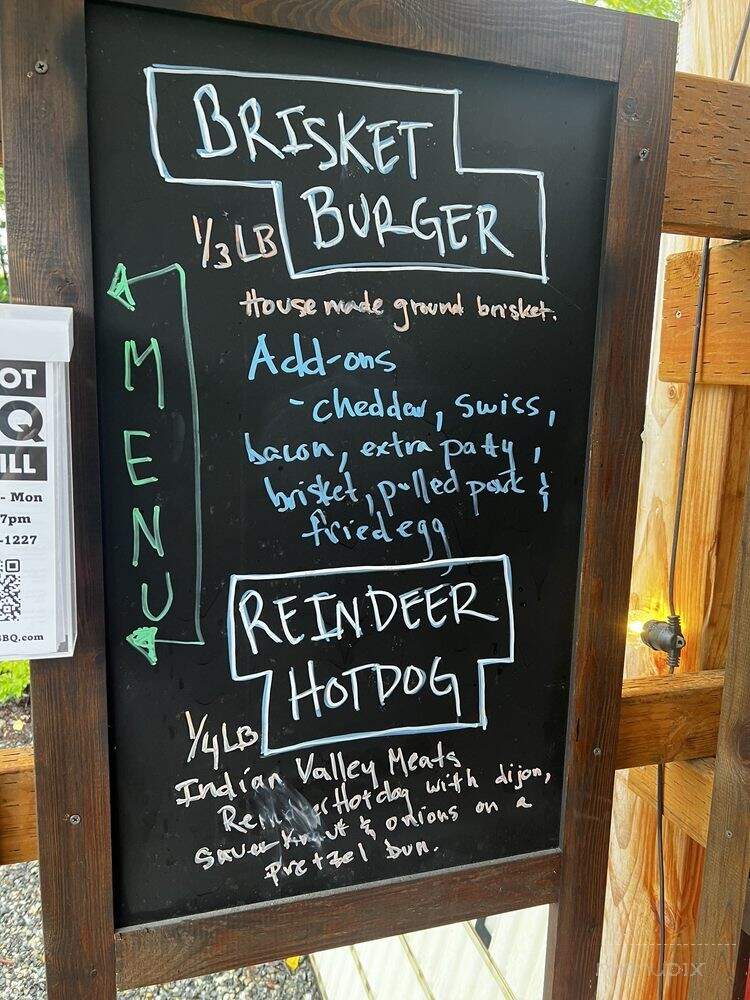 BRISKET
BURGER
1/3 LB
House made ground brisket.
Add-ons
- cheddar, swiss,
bacon, extra patty,
brisket, pulled pork &
fried egg
MENU
REINDEER
HOTDOG
1/4 LB
Indian Valley Meats
Hotdog with dijon,
Sauerkraut & onions on a
pretzel bun.
OT
Q
ILL
- Mon
7pm
-1227
BBQ.com